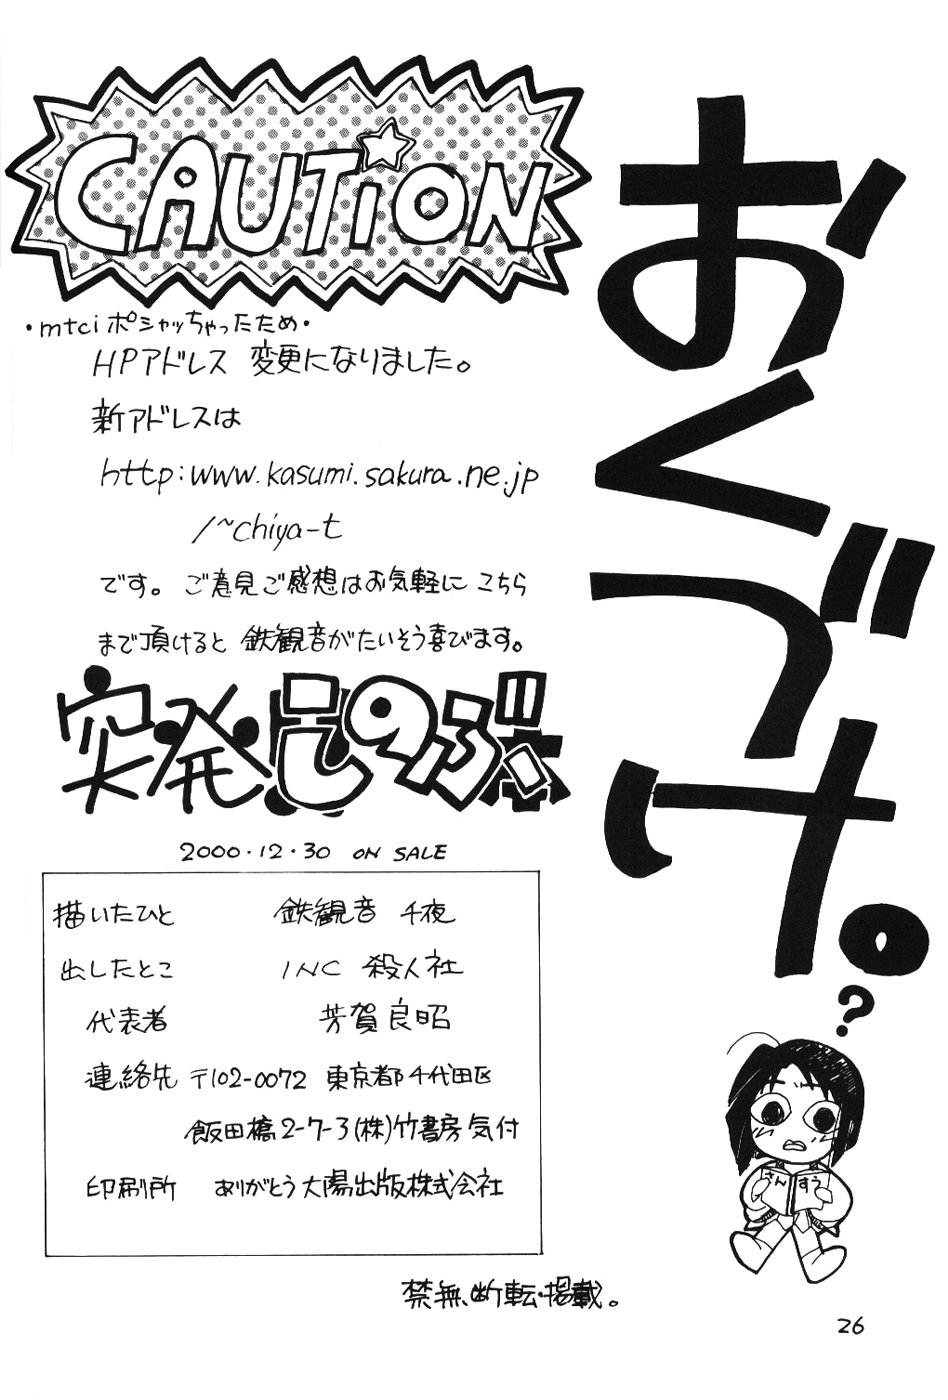 おくづけ。
CAUTiON
・mtciポシャッちゃったため・
HPアドレス 変更になりました。
新アドレスは
http:www.kasumi.sakura.ne.jp
/~chiya-t
です。ご意見ご感想はお気軽に こちら
まで頂けると 鉄観音がたいそう喜びます。
突発しのぶ本
2000・12・30 ON SALE
描いたひと 鉄観音 千夜
出したとこ INC 殺人社
代表者 芳賀良昭
連絡先 〒102-0072 東京都千代田区
飯田橋2-7-3(株)竹書房気付
印刷所 ありがとう大陽出版株式会社
?
さん すう
禁無断転・掲載。
26